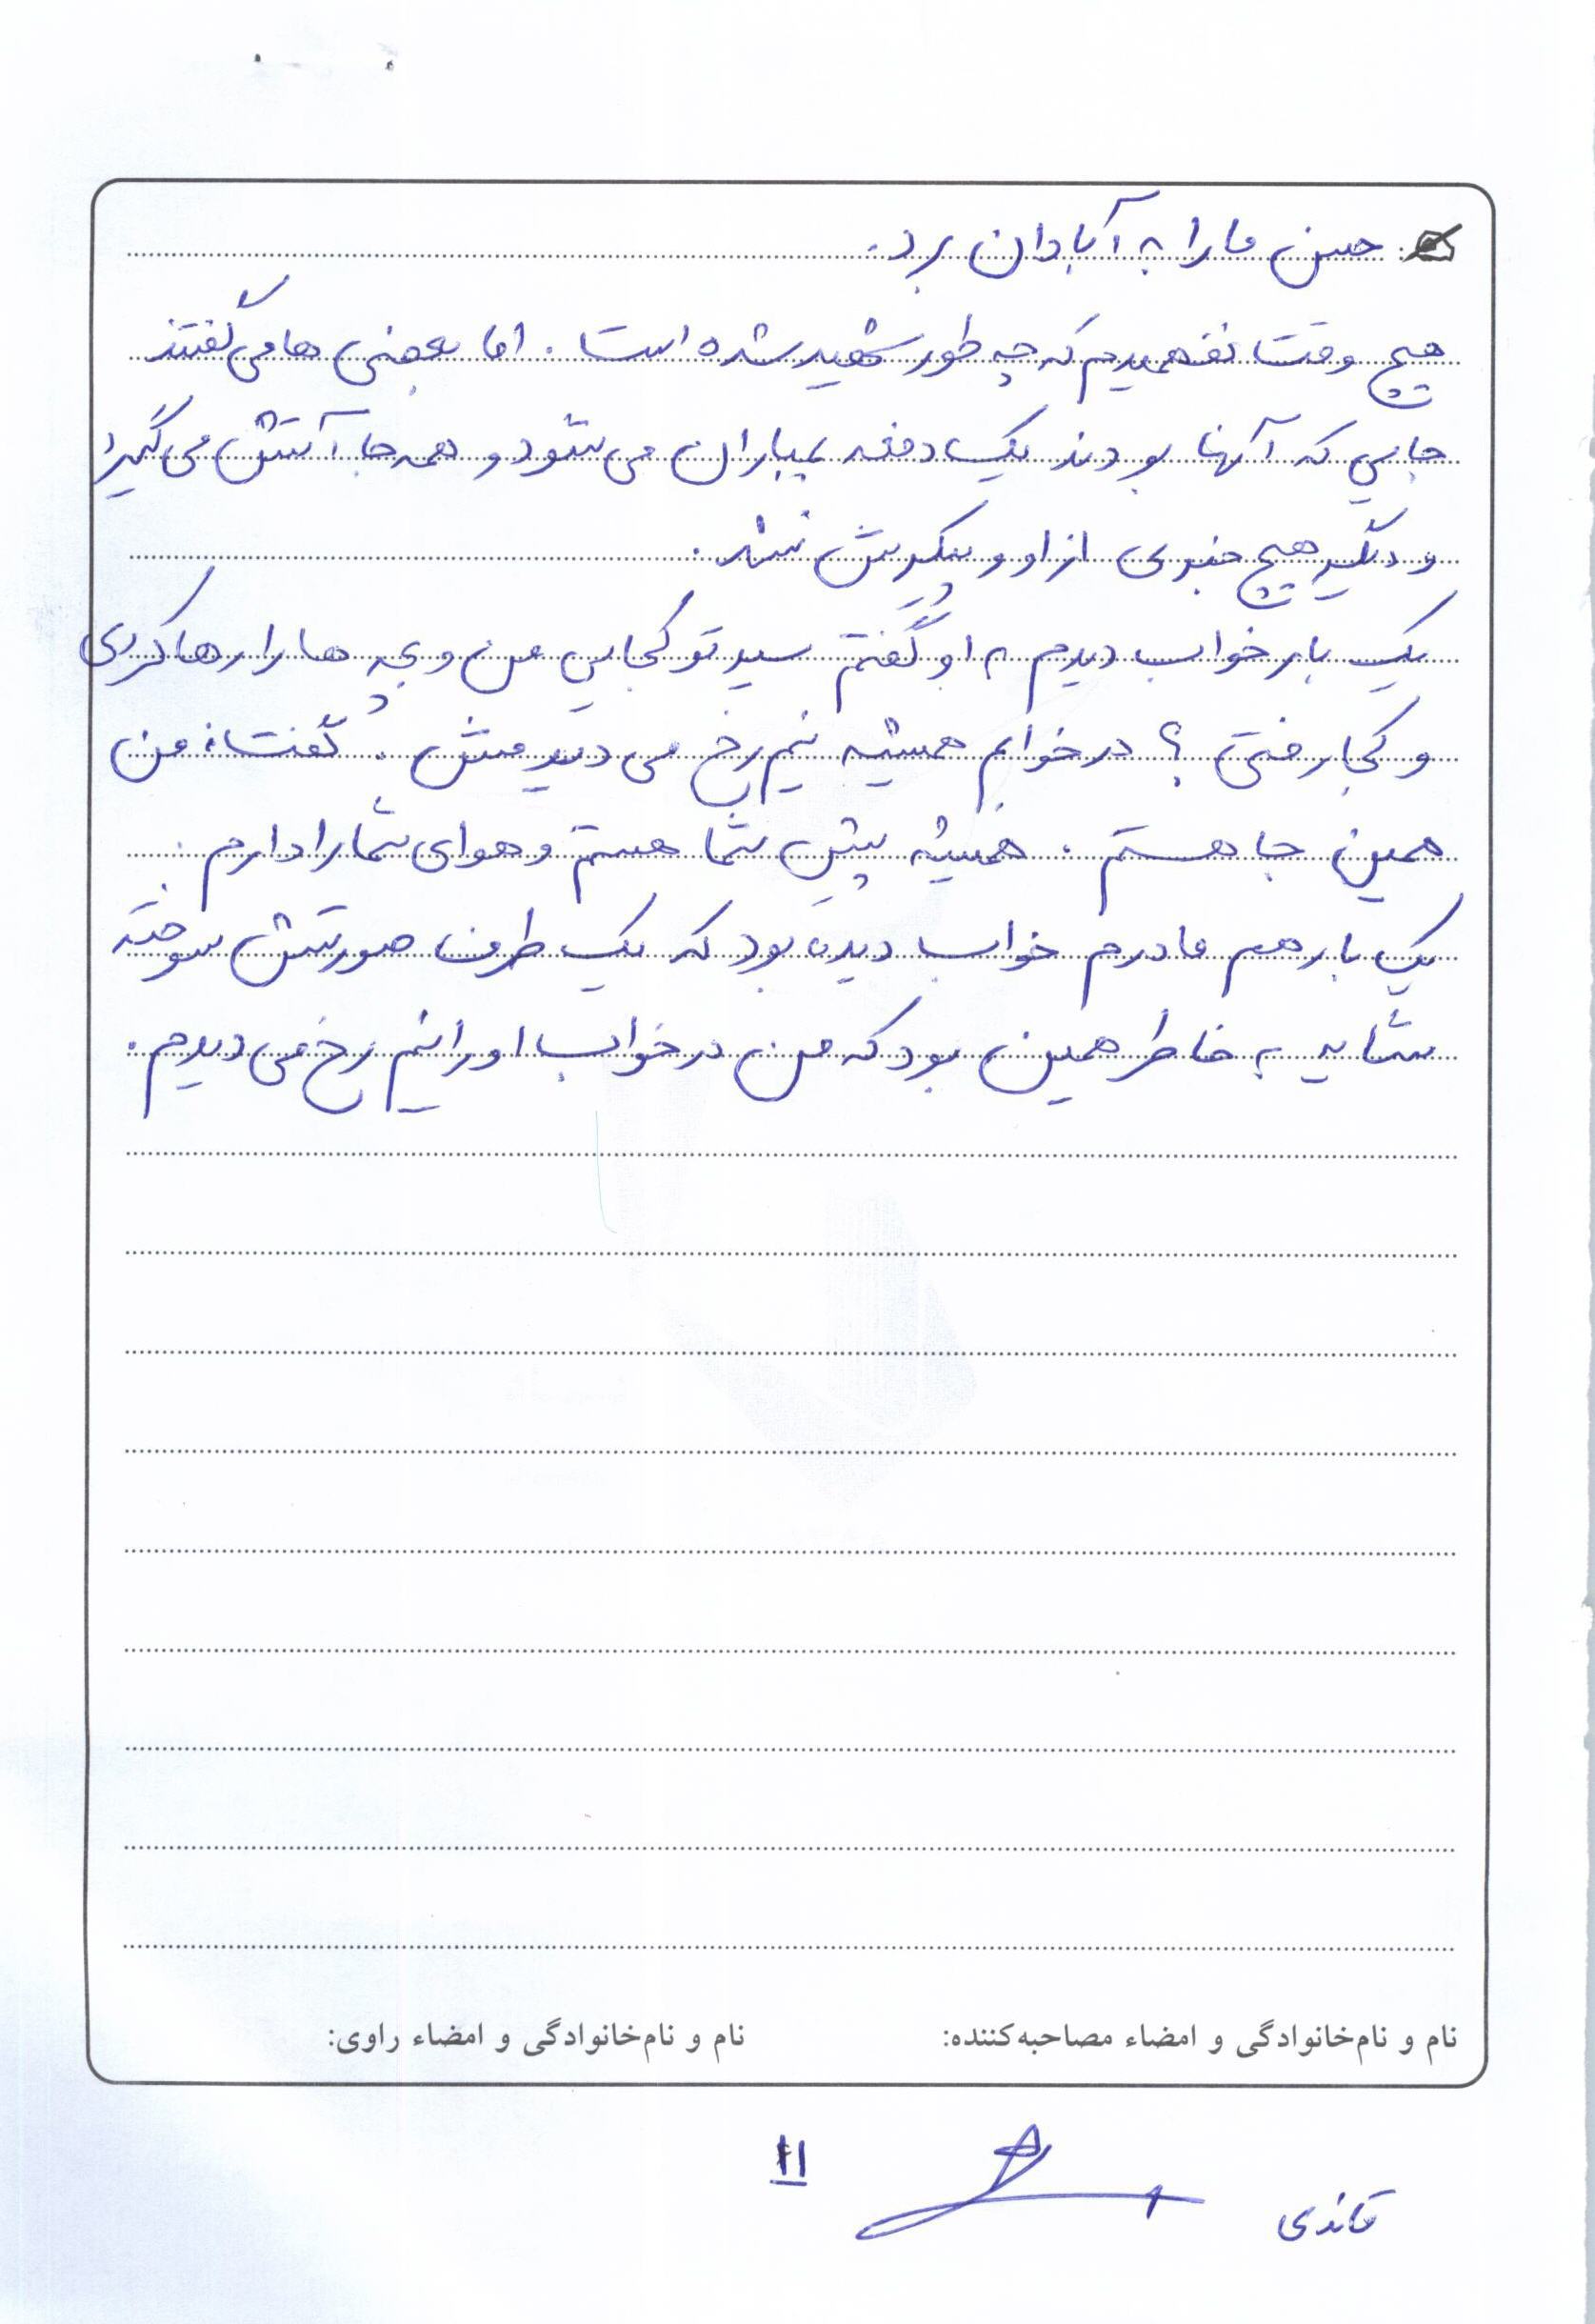 حسن ما را به آبادان برد.
هیچ وقت نفهمیدم که چه طور شهید شده است. اما بعضی ها می گفتند
جایی که آنها بودند یک دفعه بمباران می شود و همه جا آتش می گیرد
و دیگر هیچ خبری از او و پیکرش نشد.
یک بار خواب دیدم به او گفتم سید تو کجایی من و بچه ها را رها کردی
و کجا رفتی؟ در خوابم همیشه نیم رخ می دیدمش. گفت: من
همین جا هستم. همیشه پیش شما هستم و هوای شما را دارم.
یک بار هم مادرم خواب دیده بود که یک طرف صورتش سوخته
شاید به خاطر همین بود که من در خواب او را نیم رخ می دیدم.
نام و نام‌خانوادگی و امضاء مصاحبه‌کننده: نام و نام‌خانوادگی و امضاء راوی:
۱۱